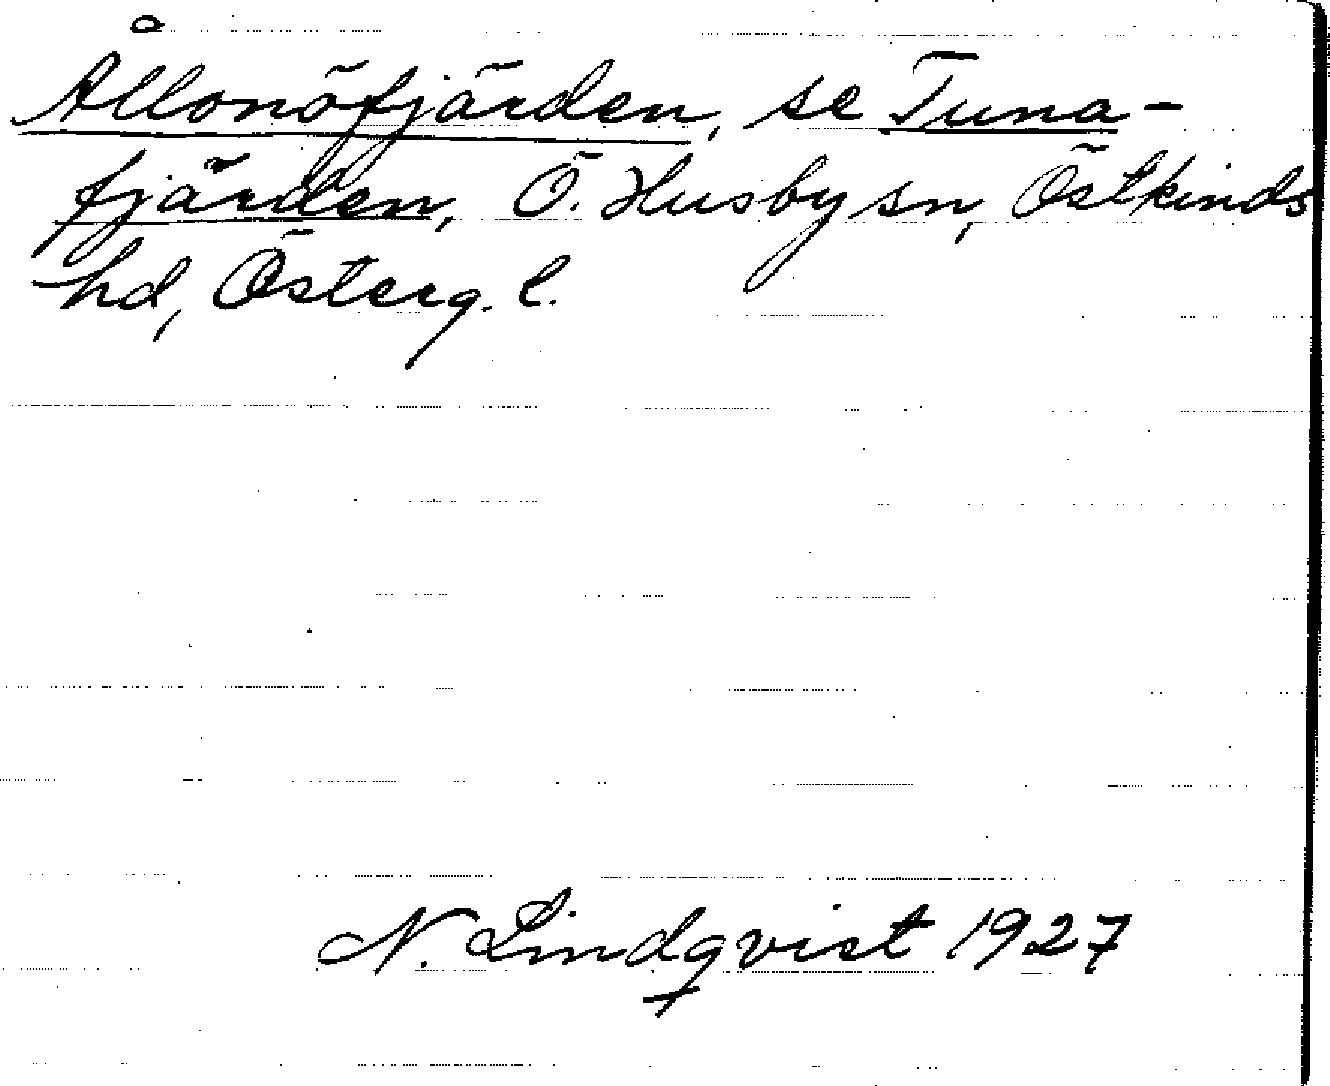 Ållonöfjärden, se Tuna-
fjärden, Ö. Husby sn, Östkinds
hd, Österg. l.
N. Lindqvist 1927